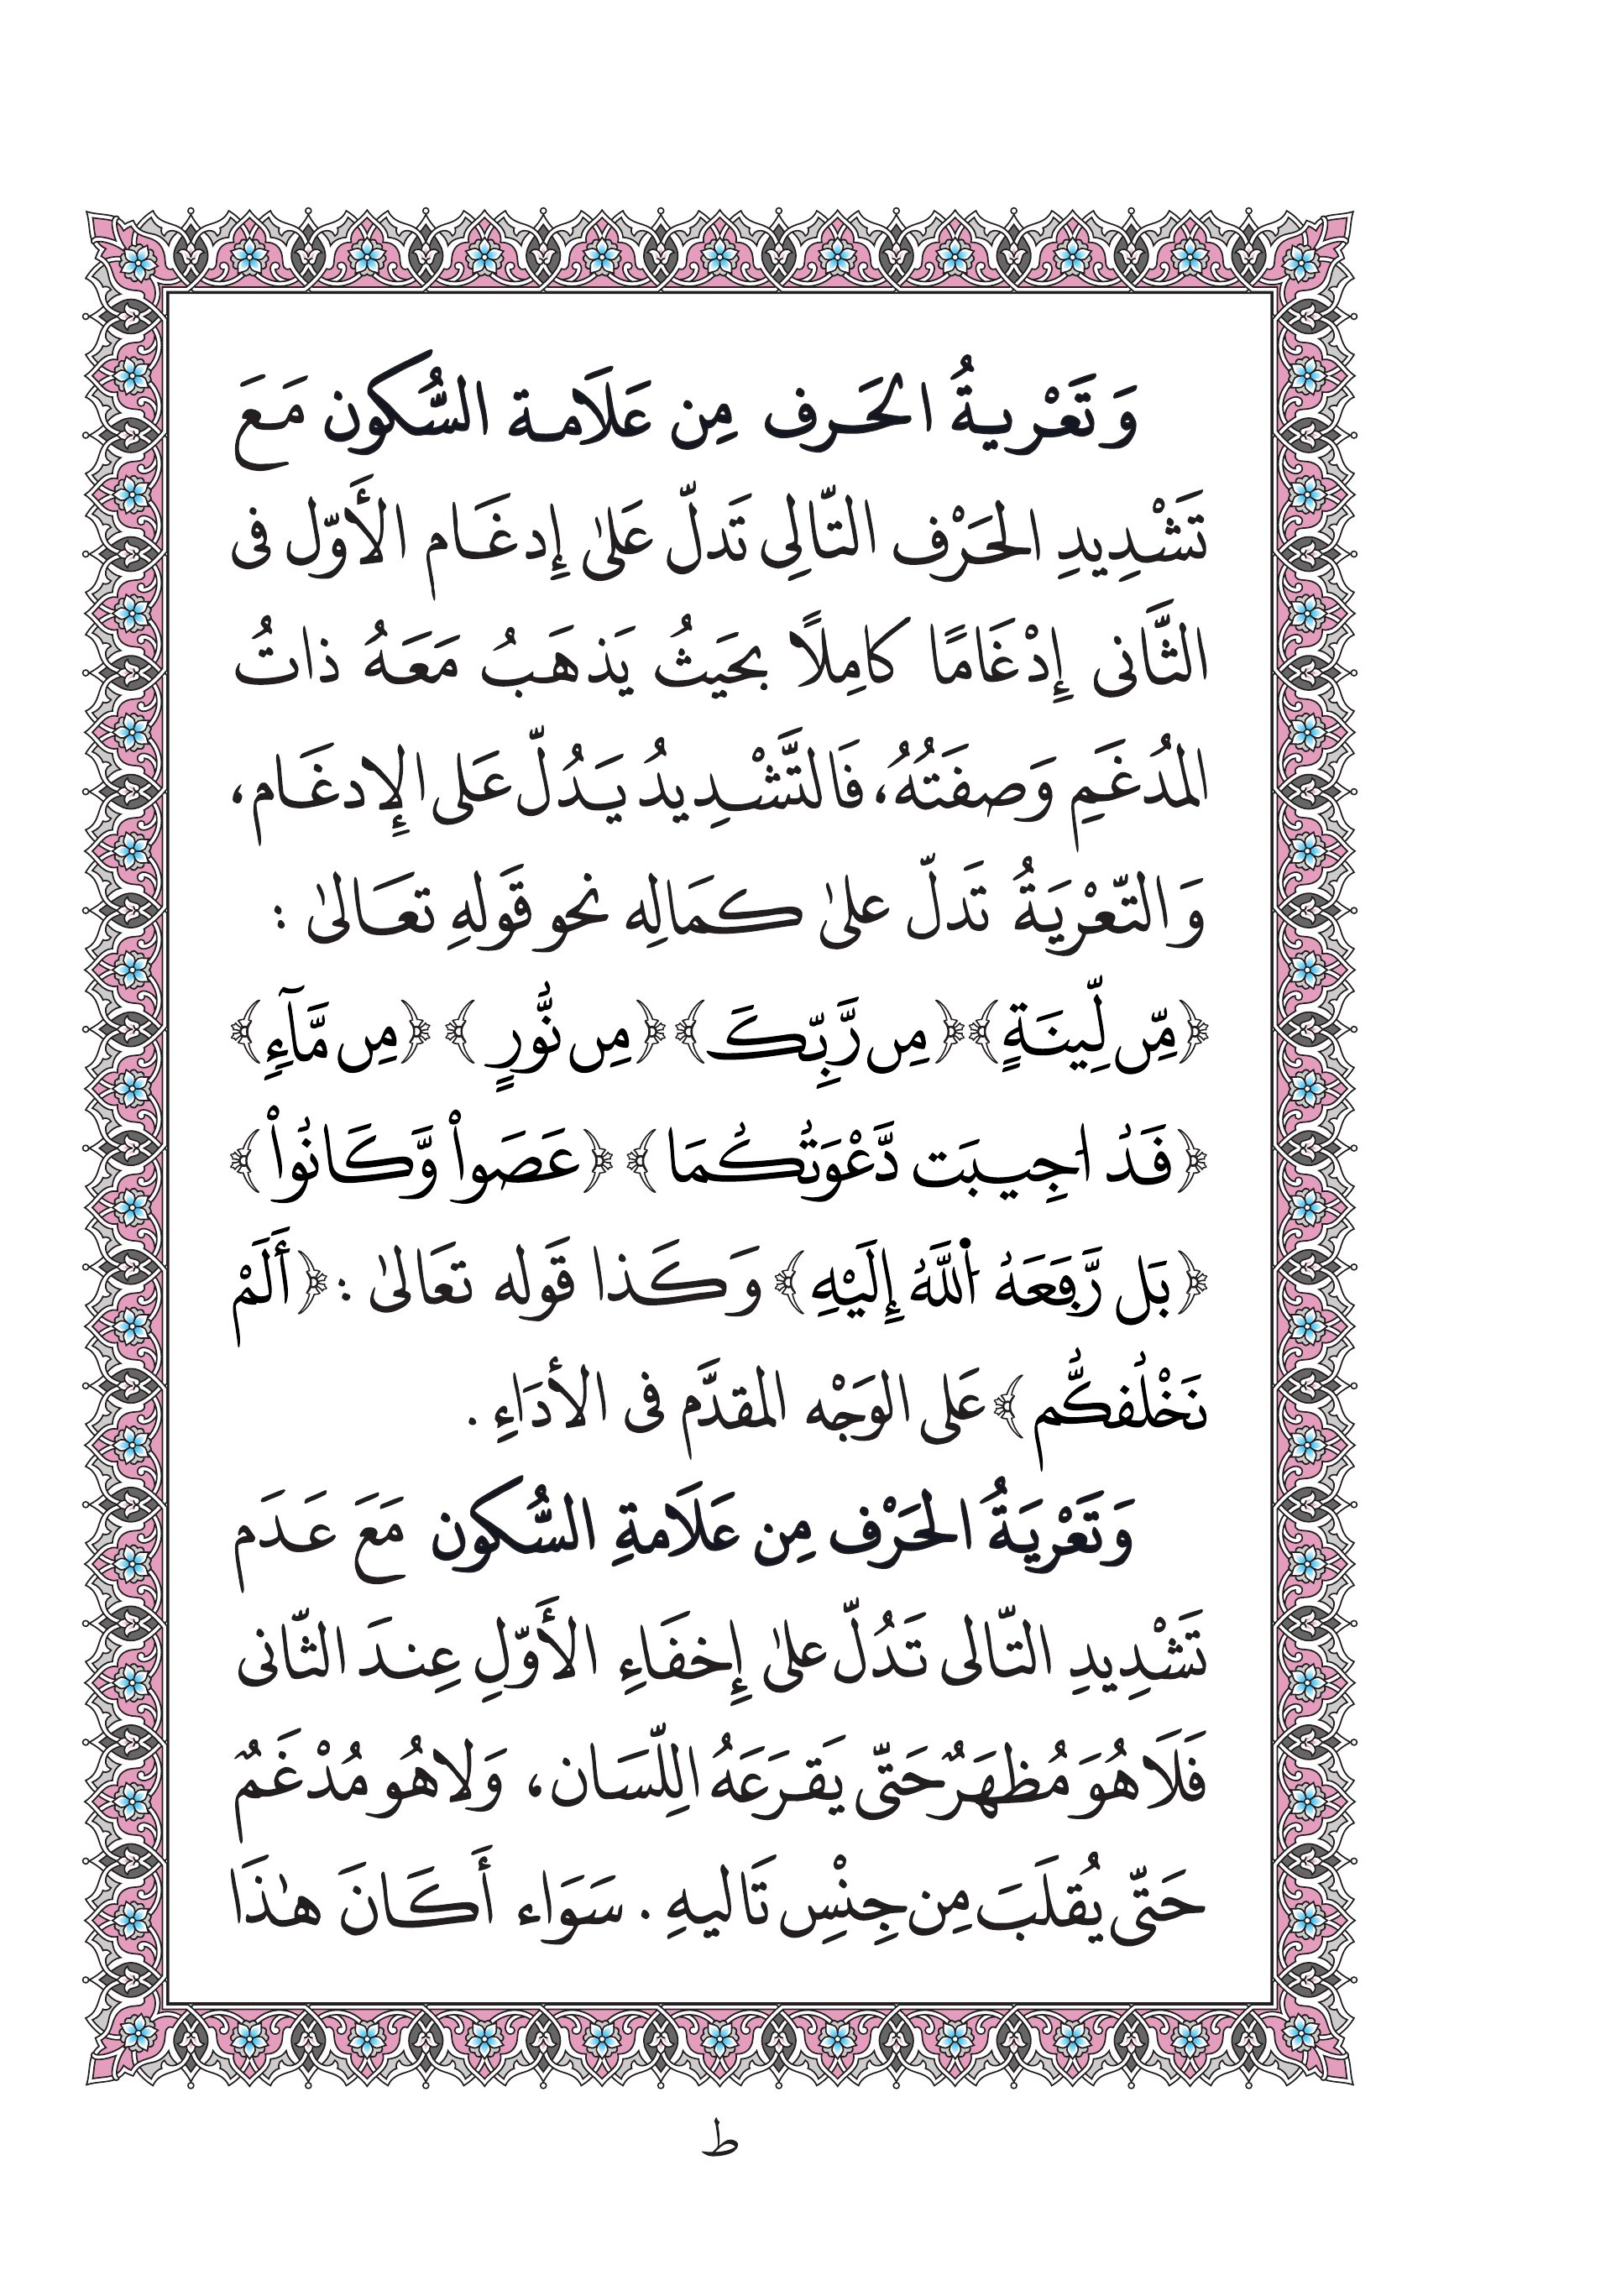 وَتَعْرِيةُ الحَرف مِن عَلَامة السُّكون مَعَ
تَشْدِيدِ الحَرْف التّالِى تَدلّ عَلىٰ إِدغَام الأَوّل فى
الثَّانى إِدْغَامًا كامِلًا بحَيثُ يَذهَبُ مَعَهُ ذاتُ
المدُغَمِ وَصفَتُهُ، فَالتَّشْدِيدُ يَدُلّ عَلى الإِدغَام،
وَالتّعْرْيَةُ تَدلّ علىٰ كمَالِهِ نحو قَولهِ تعَالىٰ :
﴿مِّن لِّينَةٍ﴾ ﴿مِن رَّبِّكَ﴾ ﴿مِن نُّورٍ﴾ ﴿مِن مَّآءٍ﴾
﴿قَدُ ا۟جِيبَت دَّعْوَتُكُمَا﴾ ﴿عَصَواْ وَّكَانُواْ﴾
﴿بَل رَّفَعَهُ اُ۬للَّهُ إِلَيْهِ﴾ وَكَذا قَوله تعَالىٰ : ﴿أَلَمْ
نَخْلُقكُّم﴾ عَلى الوَجْه المقدَّم فى الأدَاءِ .
وَتَعْرْيَةُ الحَرْف مِن عَلَامةِ السُّكون مَعَ عَدَم
تَشْدِيدِ التّالى تَدُلّ علىٰ إِخفَاءِ الأَوّلِ عِندَ الثّانى
فَلَا هُوَ مُظهَرٌ حَتّى يَقرَعَهُ اللِّسَان، وَلاهُو مُدْغَمٌ
حَتّى يُقلَبَ مِن جِنْسِ تَاليهِ . سَوَاء أَكَانَ هٰذَا
ط